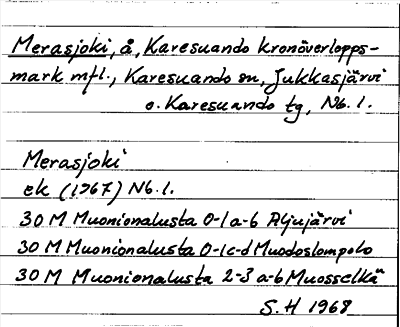 Merasjoki, å, Karesuando kronöverlopps-
mark mfl., Karesuando sn, Jukkasjärvi
o. Karesuando tg, Nb. l.
Merasjoki
ek (1967) Nb. l.
30 M Muonionalusta 0-1 a-b Aljujärvi
30 M Muonionalusta 0-1 c-d Muodoslompolo
30 M Muonionalusta 2-3 a-b Muosselkä
S. H 1968